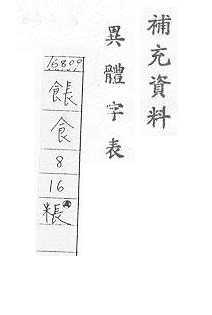 補充資料
異體字表
16809
餦
食
8
16
粻